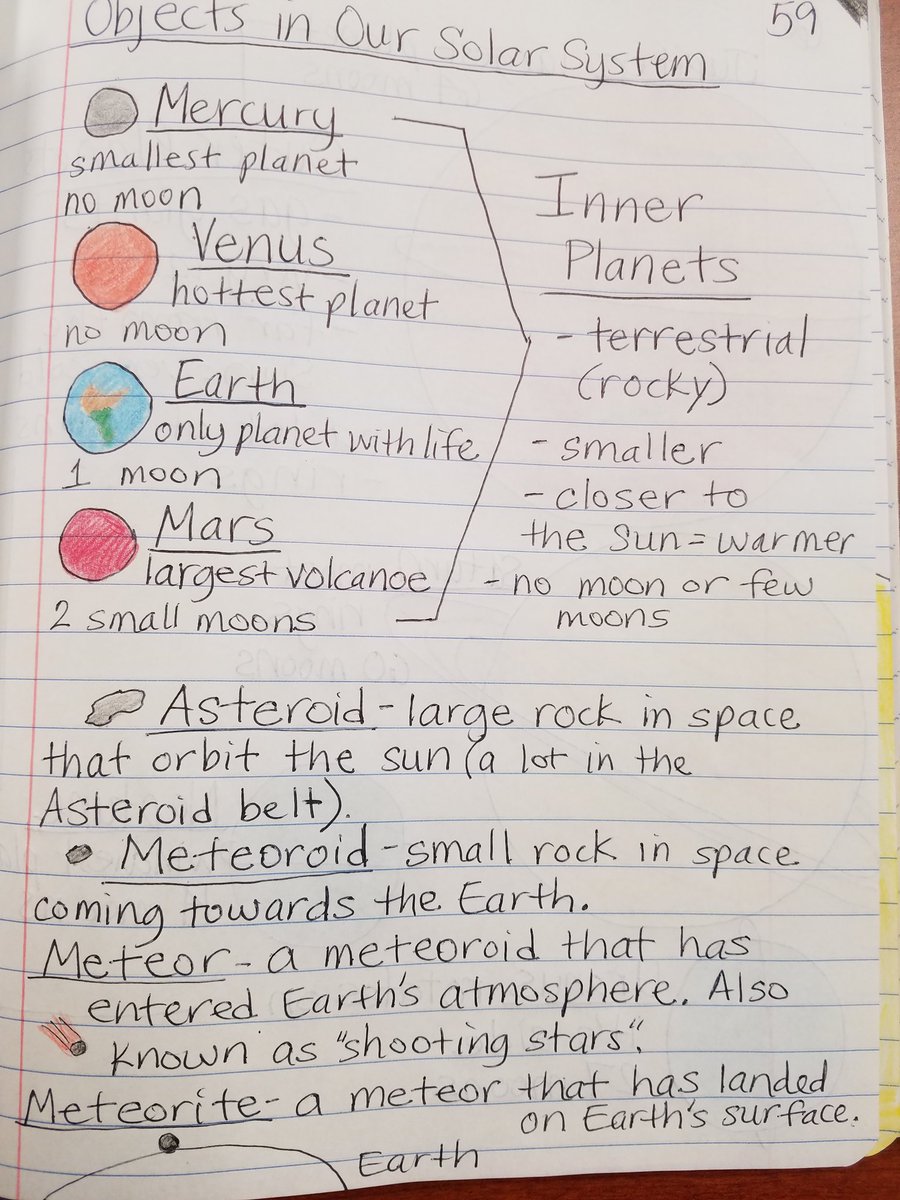 Objects in Our Solar System
59
Mercury
smallest planet
no moon
Venus
hottest planet
no moon
Earth
only planet with life
1 moon
Mars
largest volcanoe
2 small moons
Inner
Planets
- terrestrial
(rocky)
- smaller
- closer to
the sun = warmer
- no moon or few
moons
Asteroid - large rock in space
that orbit the sun (a lot in the
Asteroid belt).
Meteoroid - small rock in space
coming towards the Earth.
Meteor - a meteoroid that has
entered Earth's atmosphere. Also
known as "shooting stars".
Meteorite - a meteor that has landed
on Earth's surface.
Earth